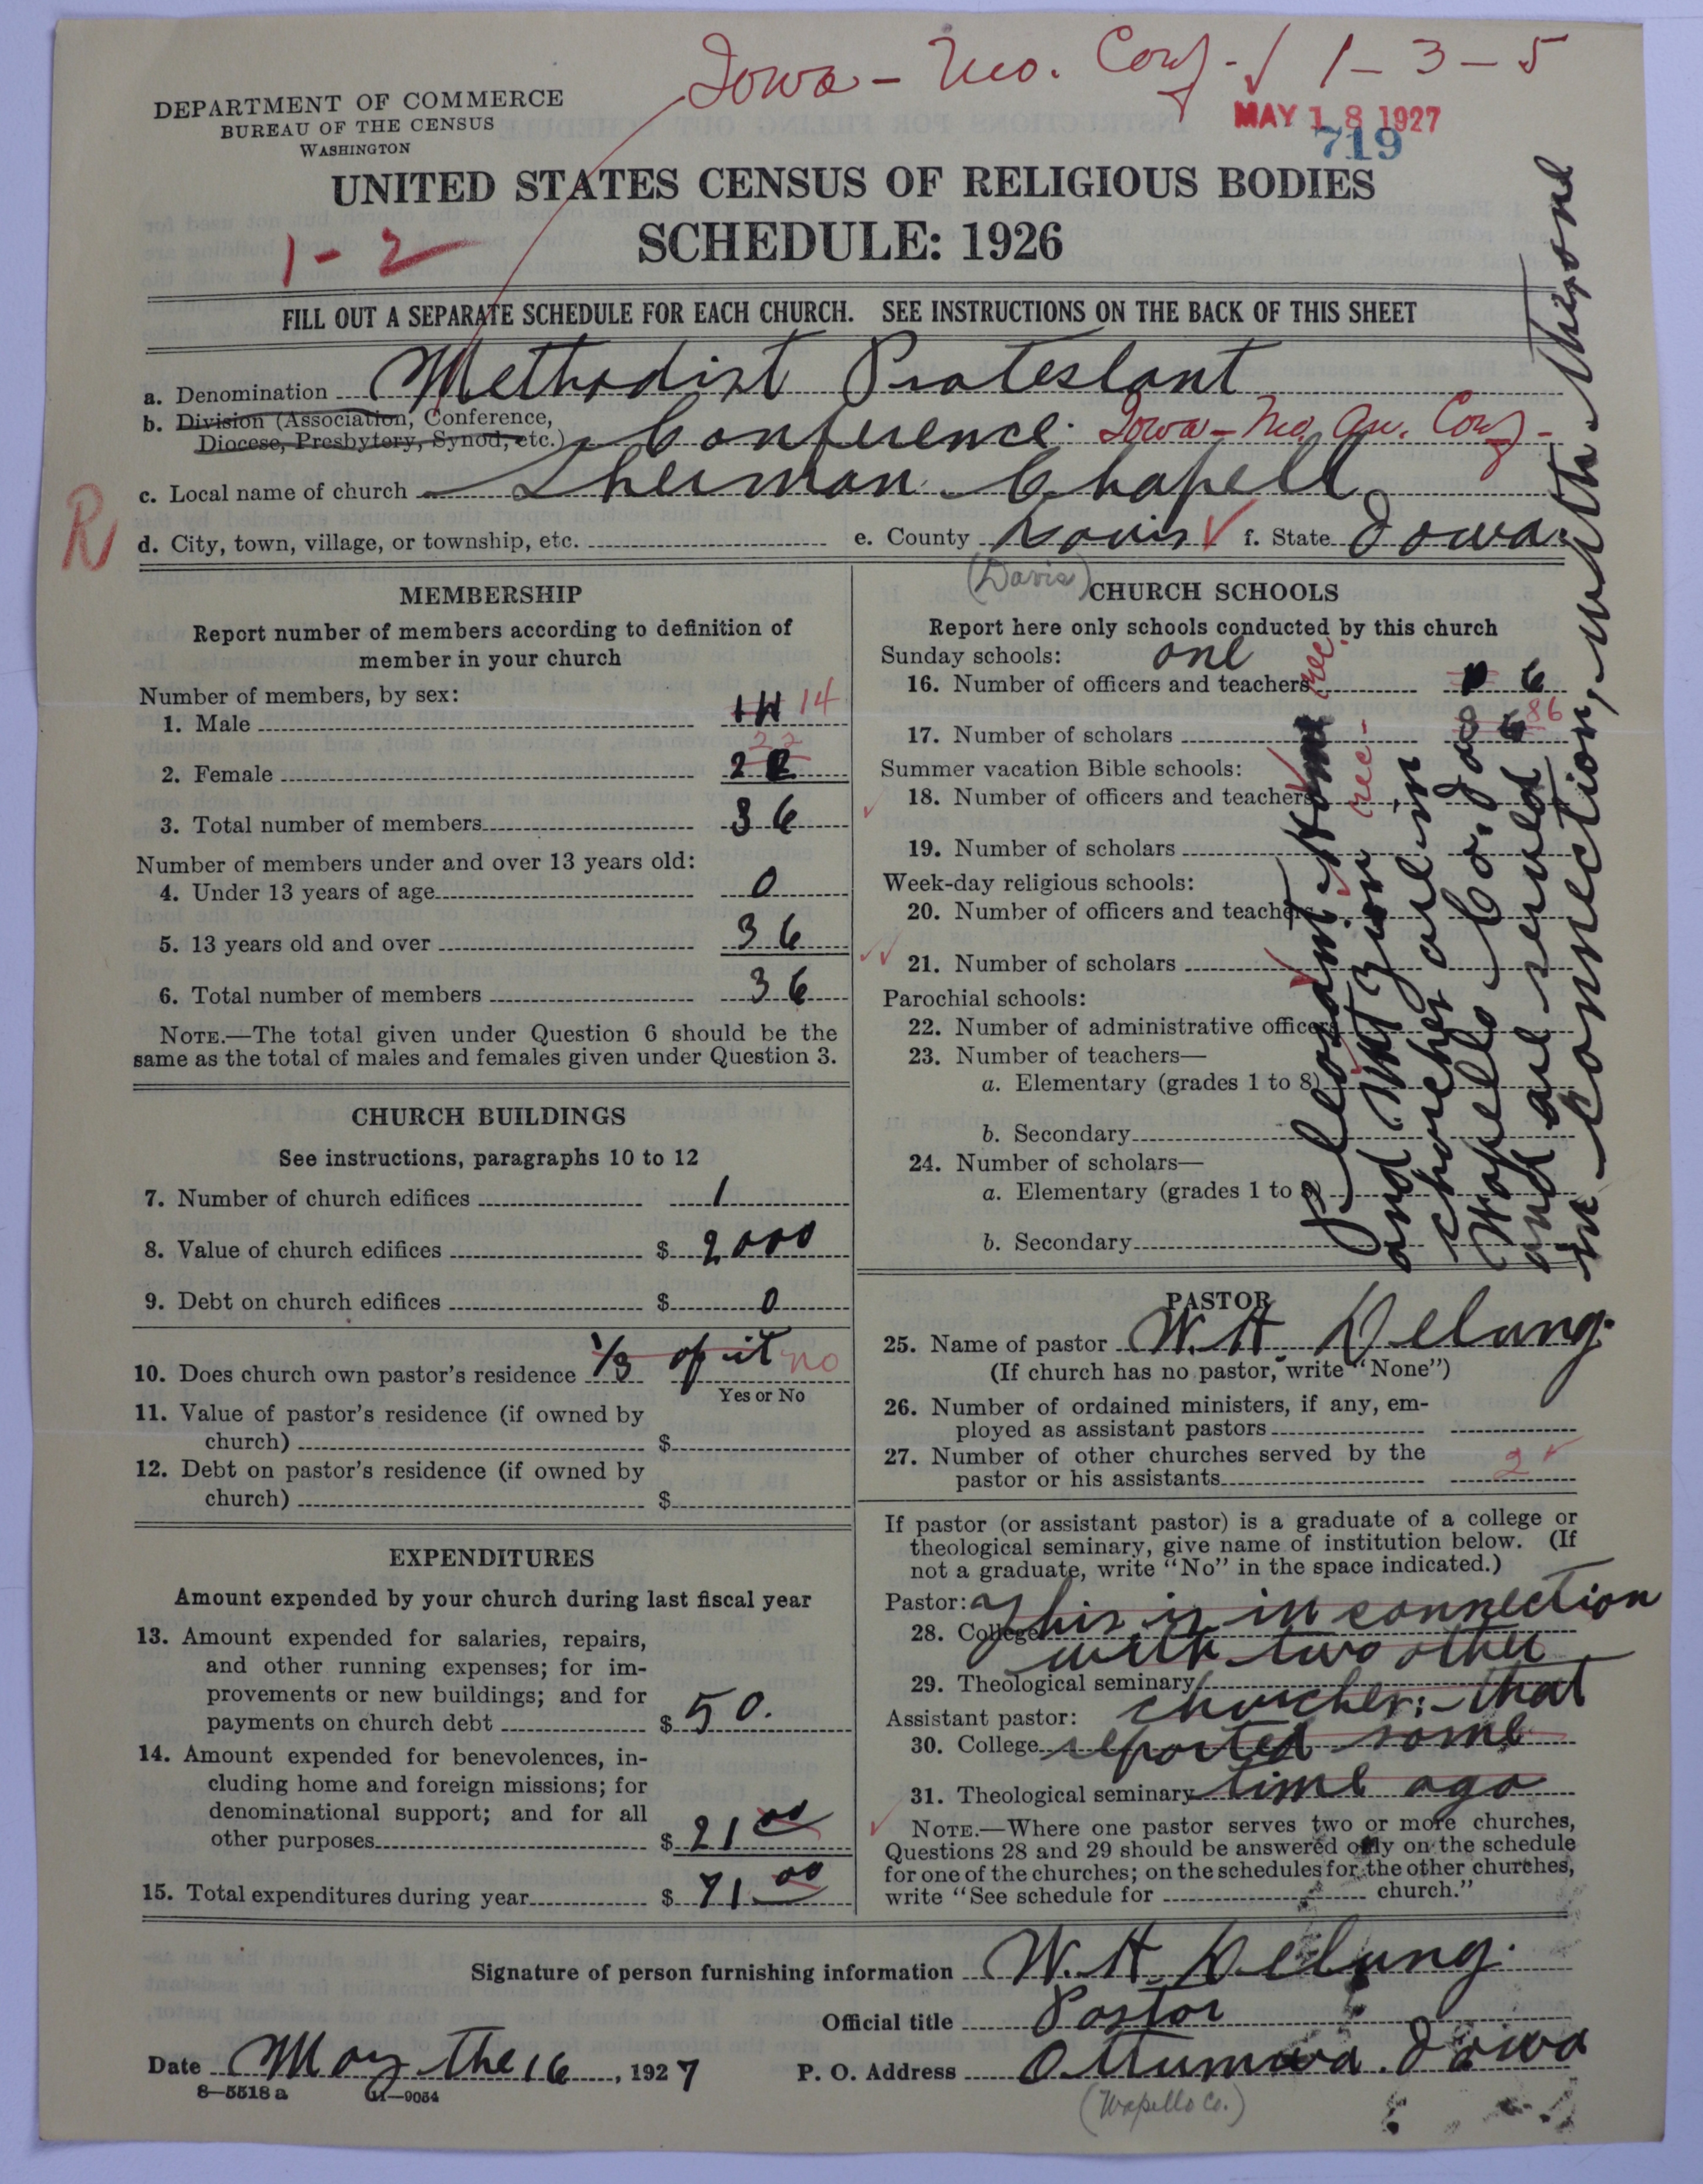 Iowa - Mo. Conf - ✓ 1 - 3 - 5
DEPARTMENT OF COMMERCE
BUREAU OF THE CENSUS
WASHINGTON
MAY 18 1927
719
UNITED STATES CENSUS OF RELIGIOUS BODIES
SCHEDULE: 1926
1 - 2
FILL OUT A SEPARATE SCHEDULE FOR EACH CHURCH. SEE INSTRUCTIONS ON THE BACK OF THIS SHEET
a. Denomination Methodist Protestant
b. Division (Association, Conference,
Diocese, Presbytery, Synod, etc.) Conference. Iowa - Mo. An. Conf -
c. Local name of church Sherman Chapell
R
d. City, town, village, or township, etc. e. County Davis ✓ f. State Iowa.
(Davis)
MEMBERSHIP
Report number of members according to definition of
member in your church
Number of members, by sex:
1. Male 14 14
2. Female 22 22
3. Total number of members 36
Number of members under and over 13 years old:
4. Under 13 years of age 0
5. 13 years old and over 36
6. Total number of members 36
NOTE.—The total given under Question 6 should be the
same as the total of males and females given under Question 3.
CHURCH BUILDINGS
See instructions, paragraphs 10 to 12
7. Number of church edifices 1
8. Value of church edifices $ 2000
9. Debt on church edifices $ 0
10. Does church own pastor's residence 1/3 of it no
Yes or No
11. Value of pastor's residence (if owned by
church) $
12. Debt on pastor's residence (if owned by
church) $
EXPENDITURES
Amount expended by your church during last fiscal year
13. Amount expended for salaries, repairs,
and other running expenses; for im-
provements or new buildings; and for
payments on church debt $ 50.
14. Amount expended for benevolences, in-
cluding home and foreign missions; for
denominational support; and for all
other purposes $ 21 00
15. Total expenditures during year $ 71 00
CHURCH SCHOOLS
Report here only schools conducted by this church
Sunday schools: one
16. Number of officers and teachers 6
17. Number of scholars 86
Summer vacation Bible schools:
18. Number of officers and teachers
19. Number of scholars
Week-day religious schools:
20. Number of officers and teachers
21. Number of scholars
Parochial schools:
22. Number of administrative officers
23. Number of teachers—
a. Elementary (grades 1 to 8)
b. Secondary
24. Number of scholars—
a. Elementary (grades 1 to 8)
b. Secondary
rec.
rec -
Pleasant Home
and Mt Zion
churches are in
Wapello Co. Iowa
and are served
in connection, with this one
PASTOR
25. Name of pastor W. H. Delung.
(If church has no pastor, write "None")
26. Number of ordained ministers, if any, em-
ployed as assistant pastors
27. Number of other churches served by the
pastor or his assistants 2 ✓
If pastor (or assistant pastor) is a graduate of a college or
theological seminary, give name of institution below. (If
not a graduate, write "No" in the space indicated.)
Pastor: This is in connection
28. College with two other
29. Theological seminary churches: - that
Assistant pastor:
30. College reported some
31. Theological seminary time ago
NOTE.—Where one pastor serves two or more churches,
Questions 28 and 29 should be answered only on the schedule
for one of the churches; on the schedules for the other churches,
write "See schedule for church."
Signature of person furnishing information W. H. Delung.
Official title Pastor
Date May the 16, 1927 P. O. Address Ottumwa. Iowa
8—5518 a 11—9054
(Wapello Co.)